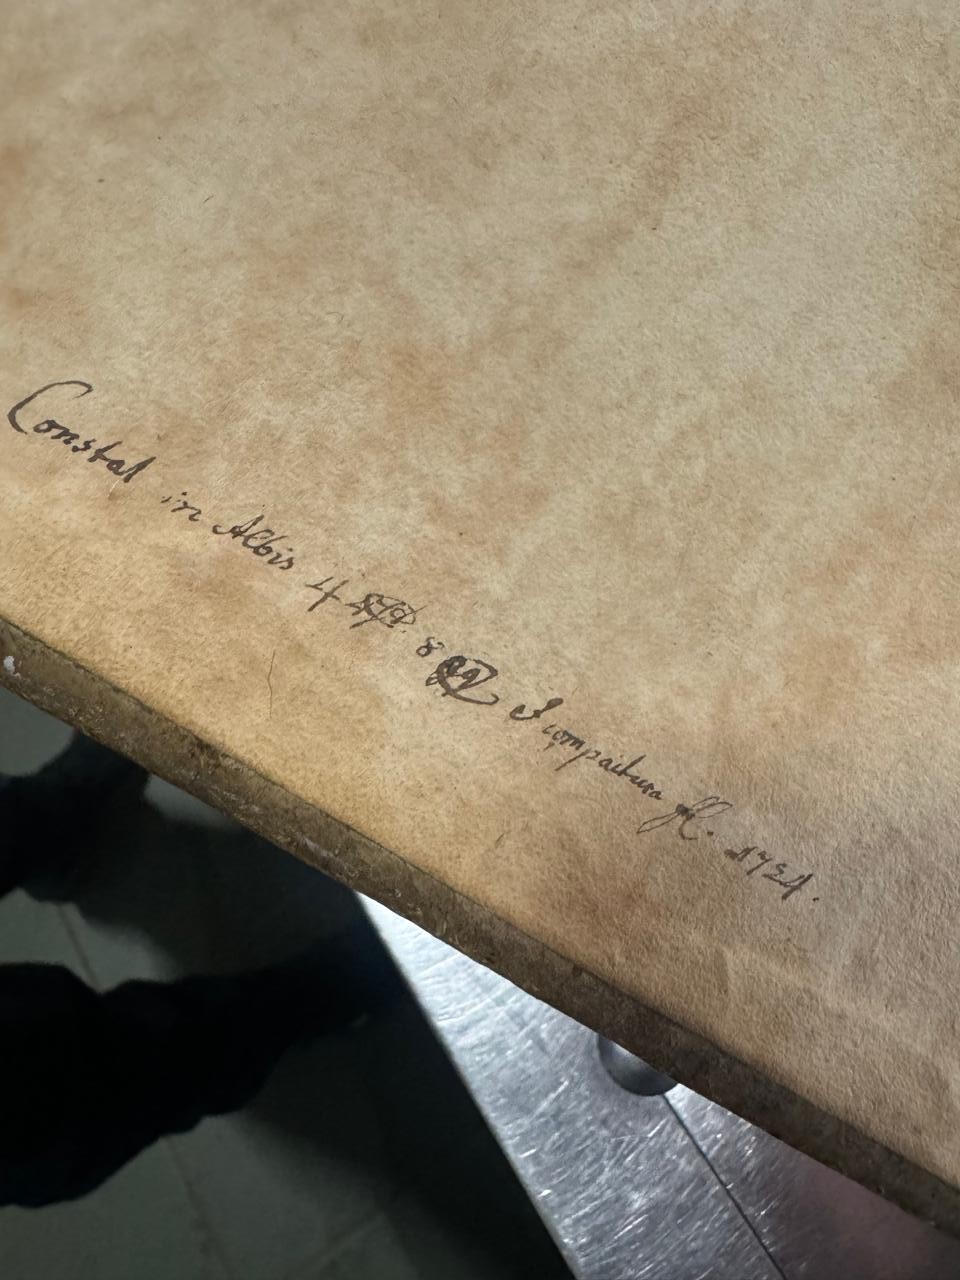 Constat in Albis 4 8 compactura fl. 1724.